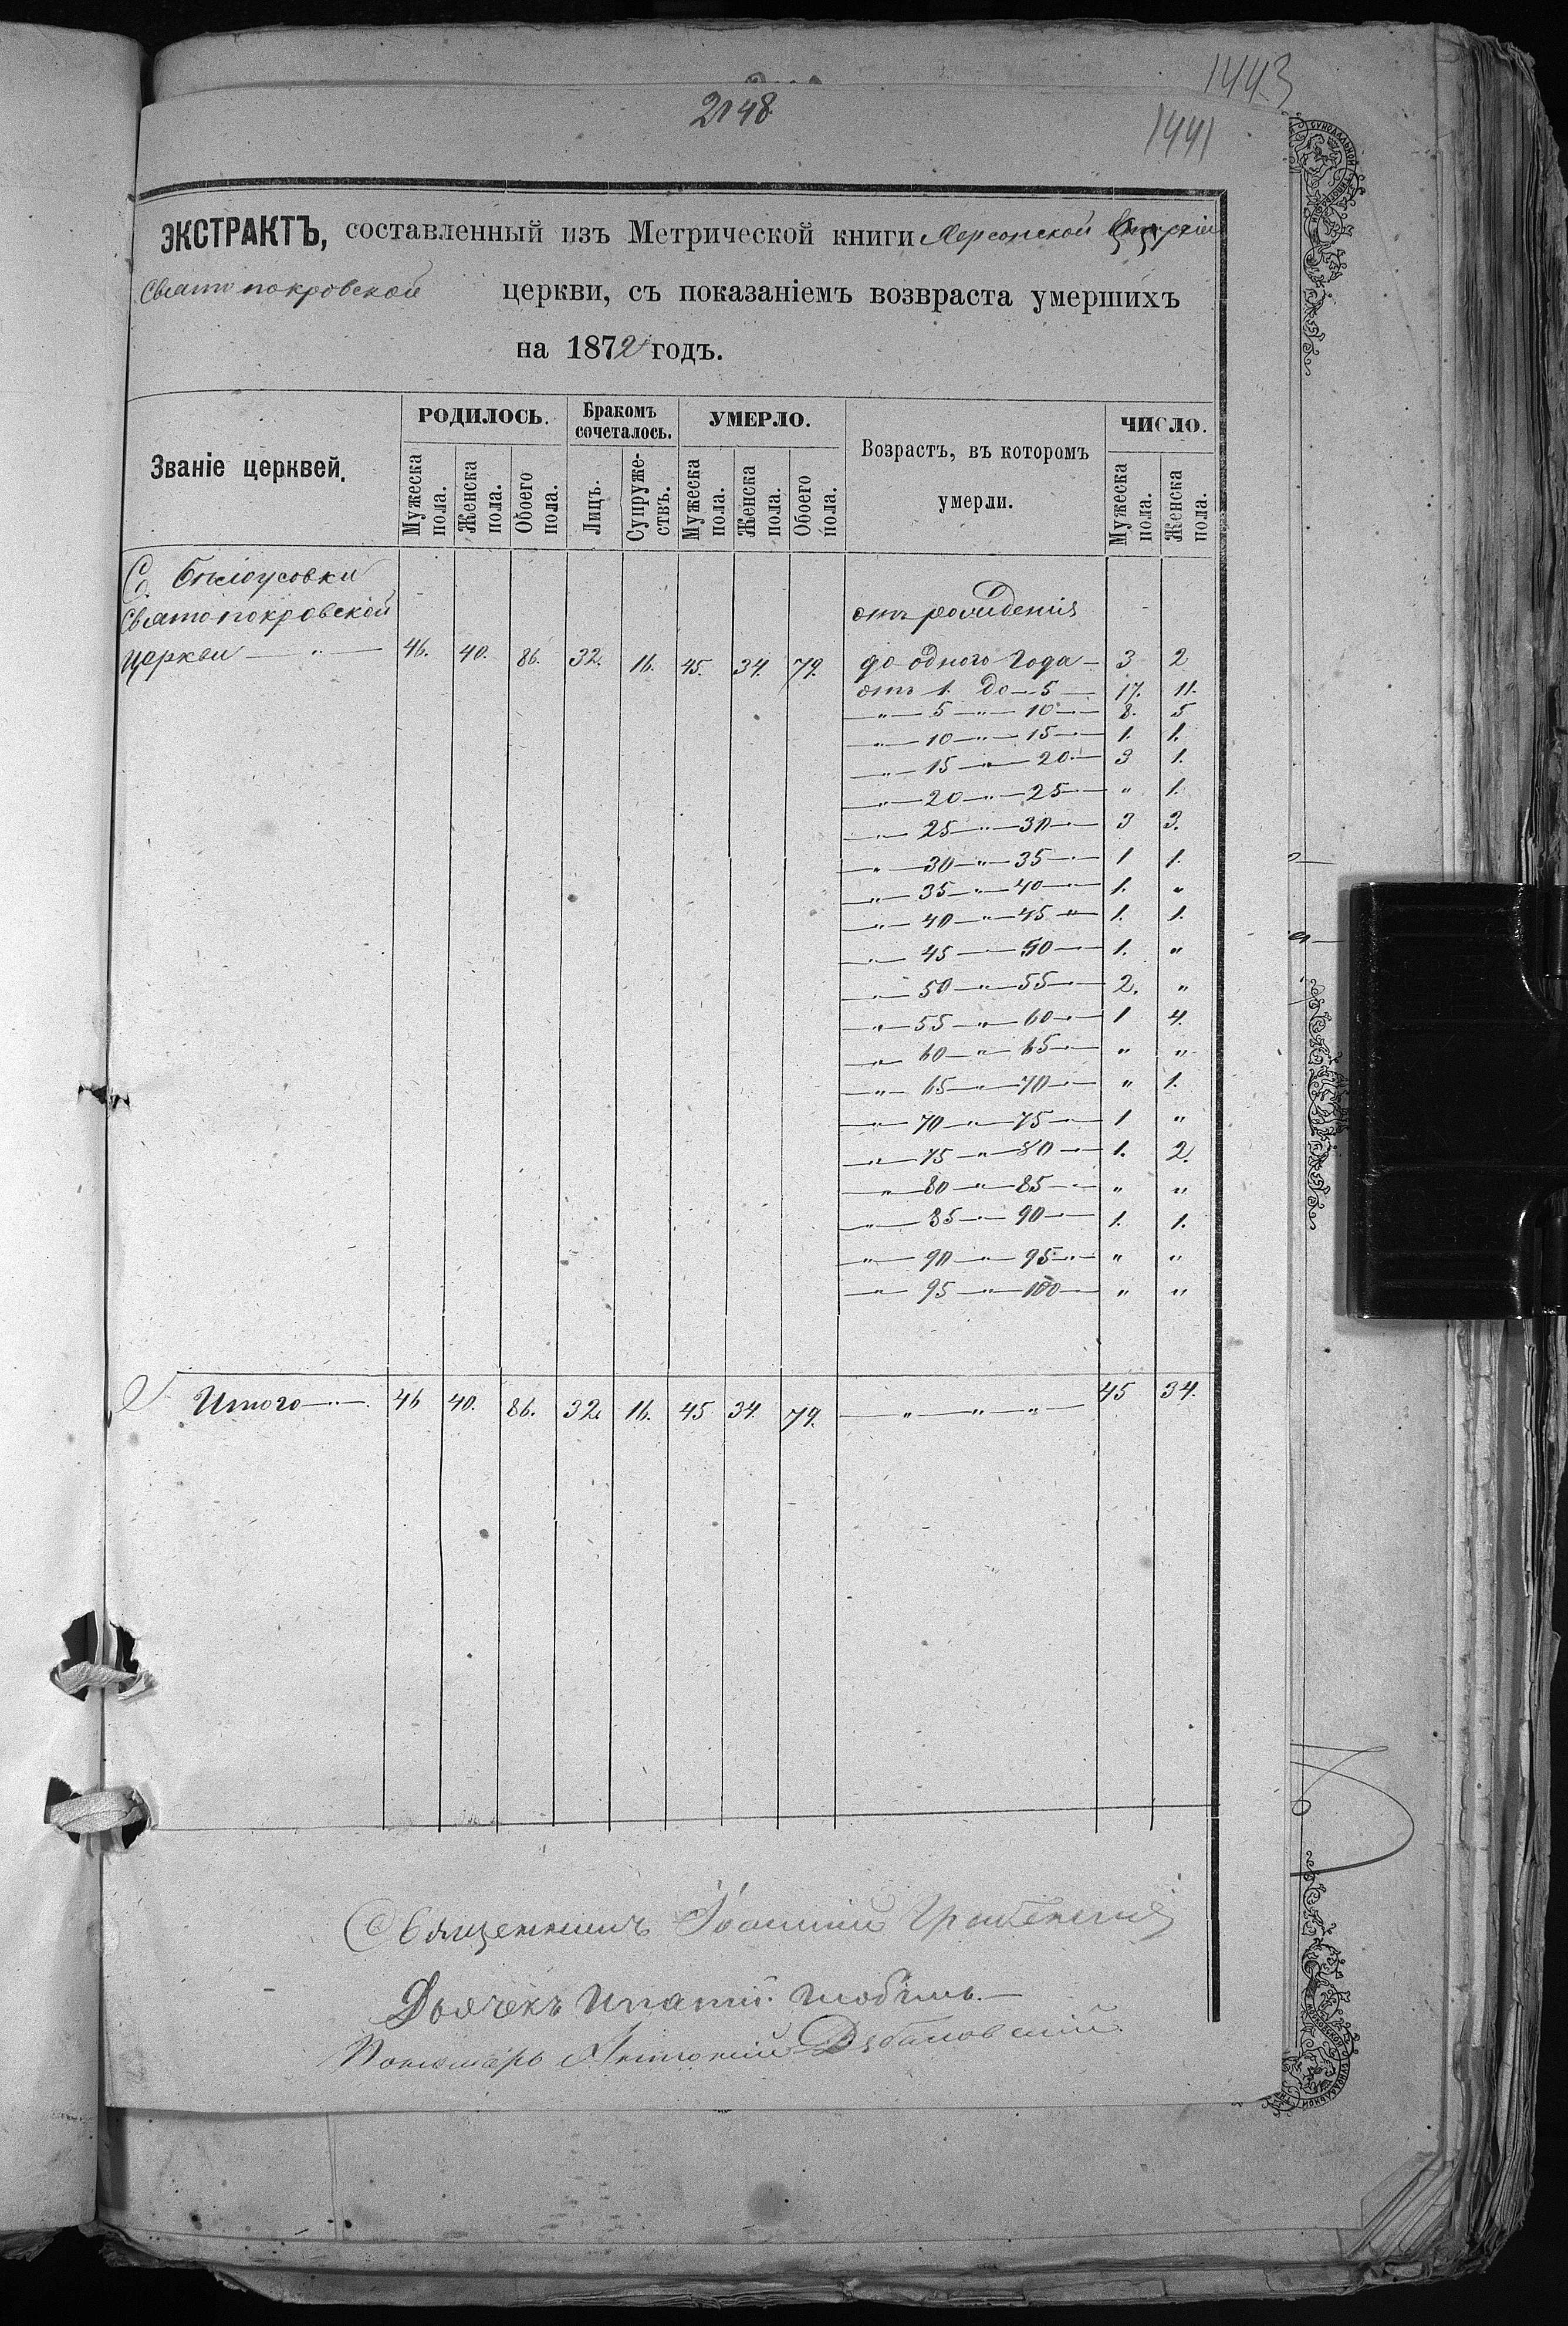 1443
2148
1441
ЭКСТРАКТЪ, составленный изъ Метрической книги Херсонской Епархіи
Свято покровской церкви, съ показаніемъ возвраста умершихъ
на 1872 годъ.
Званіе церквей.
РОДИЛОСЬ.
Мужеска пола.
Женска пола.
Обоего пола.
Бракомъ сочеталось.
Лицъ.
Супружествъ.
УМЕРЛО.
Мужеска пола.
Женска пола.
Обоего пола.
Возрастъ, въ которомъ
умерли.
ЧИСЛО.
Мужеска пола.
Женска пола.
С. Бѣлоусовки
Святопокровской отъ рожденія
церкви — " — 46. 40. 86. 32. 16. 45. 34. 79. до одного года — 3 2
отъ 1. до — 5 — 17. 11.
" — 5 — " — 10 — 8. 5
" — 10 — " — 15 — 1. 1.
" — 15 — " — 20 — 3 1.
" — 20 — " — 25 — " 1.
" — 25 — " — 30 — 3 3.
" — 30 — " — 35 — 1 1.
" — 35 — " — 40 — 1. "
" — 40 — " — 45 — 1. 1.
" — 45 — " — 50 — 1. "
" — 50 — " — 55 — 2. "
" — 55 — " — 60 — 1 4.
" — 60 — " — 65 — " "
" — 65 — " — 70 — " 1.
" — 70 — " — 75 — 1 "
" — 75 — " — 80 — 1. 2.
" — 80 — " — 85 — " "
" — 85 — " — 90 — 1. 1.
" — 90 — " — 95 — " "
" — 95 — " — 100 — " "
Итого — " — 46 40. 86. 32. 16. 45 34. 79. — " — " — " — 45 34.
Священникъ Іоаннъ
Дьячекъ Ипатій
Пономарь Антоній